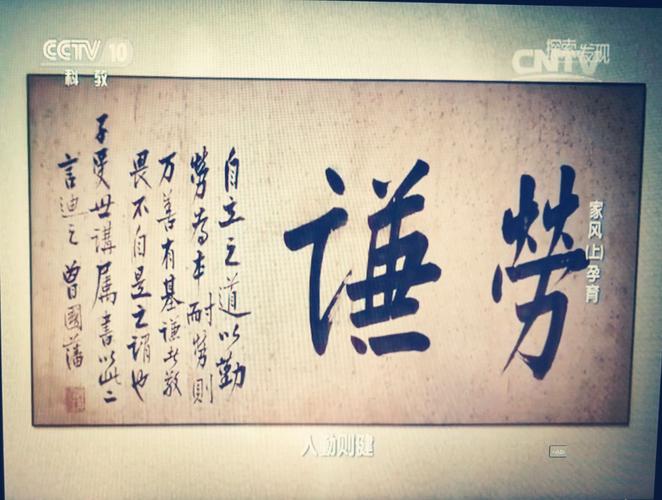 CCTV 10
科教
CNTV
探索发现
家风(上)孕育
勞謙
自立之道以勤
勞為本耐勞則
万善有基謙者敬
畏不自是之謂也
子受世講属書以此二
言迪之曾國藩
人勤则健